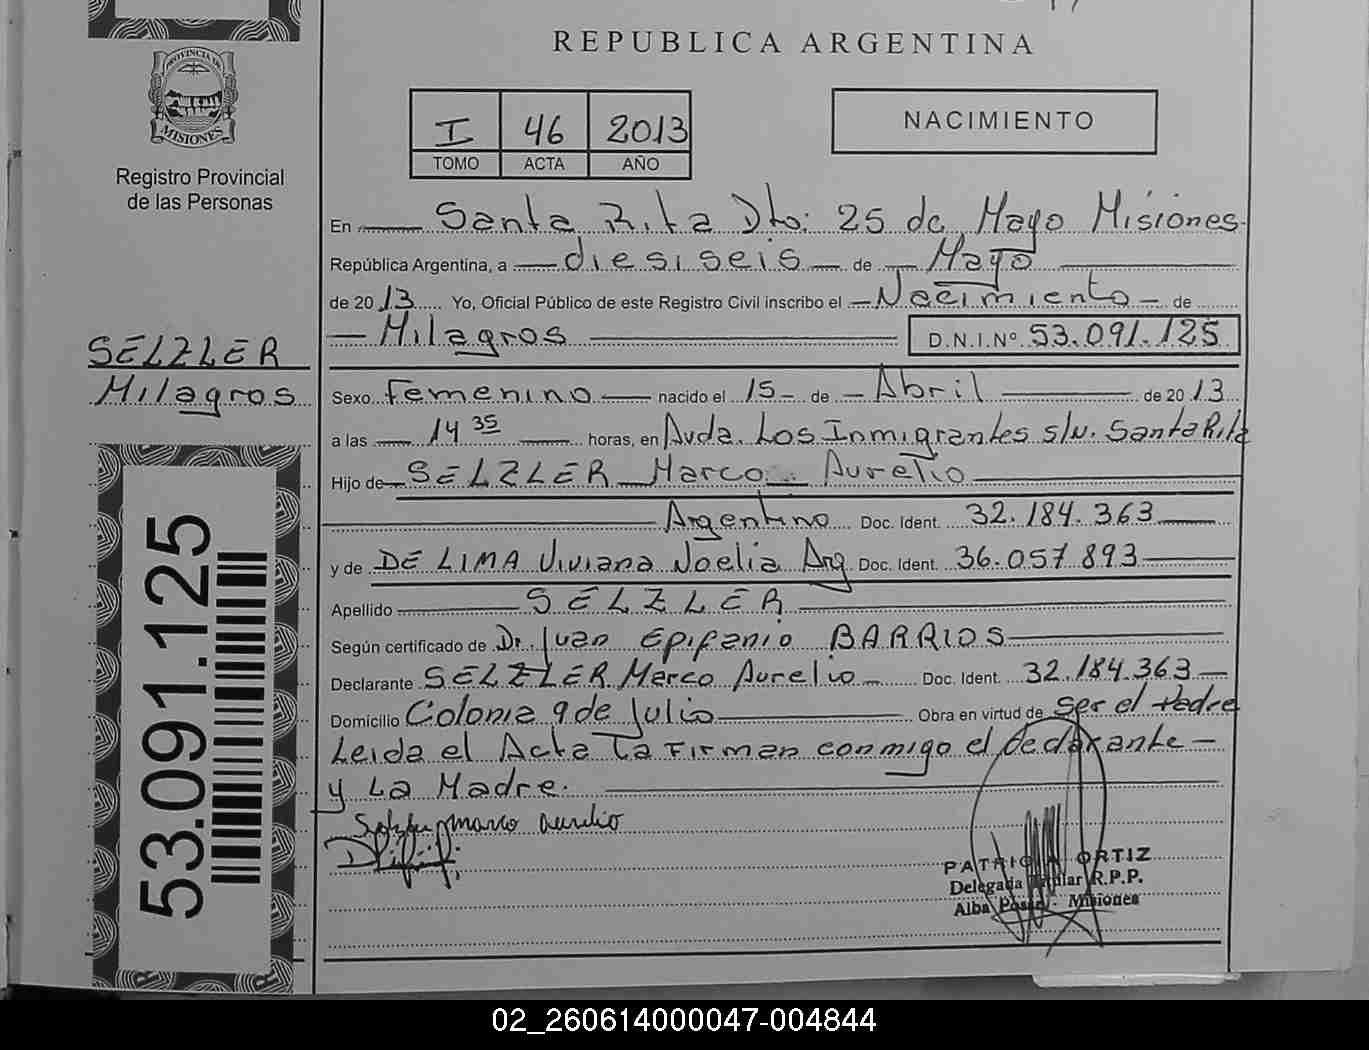 REPUBLICA ARGENTINA
PROVINCIA DE
MISIONES
Registro Provincial
de las Personas
I 46 2013
TOMO ACTA AÑO
NACIMIENTO
SELZLER
Milagros
53.091.125
En Santa Rita Dto: 25 de Mayo Misiones-
República Argentina, a — diesiseis — de — Mayo
de 20 13 Yo, Oficial Público de este Registro Civil inscribo el — Nacimiento — de
— Milagros D.N.I.Nº 53.091.125
Sexo Femenino — nacido el 15 - de — Abril — de 20 13
a las — 14 35 — horas, en Avda. Los Inmigrantes s/N. Santa Rita
Hijo de — SELZLER Marco Aurelio
Argentino Doc. Ident. 32.184.363
y de DE LIMA Viviana Noelia Arg Doc. Ident. 36.057.893
Apellido SELZLER
Según certificado de Dr. Juan Epifanio BARRIOS
Declarante SELZLER Marco Aurelio Doc. Ident. 32.184.363
Domicilio Colonia 9 de Julio Obra en virtud de Ser el Padre
Leida el Acta La Firman conmigo el declarante -
y La Madre.
Selzler marco aurelio
PATRICIA ORTIZ
Delegada Titular R.P.P.
Alba Posse - Misiones
02_260614000047-004844